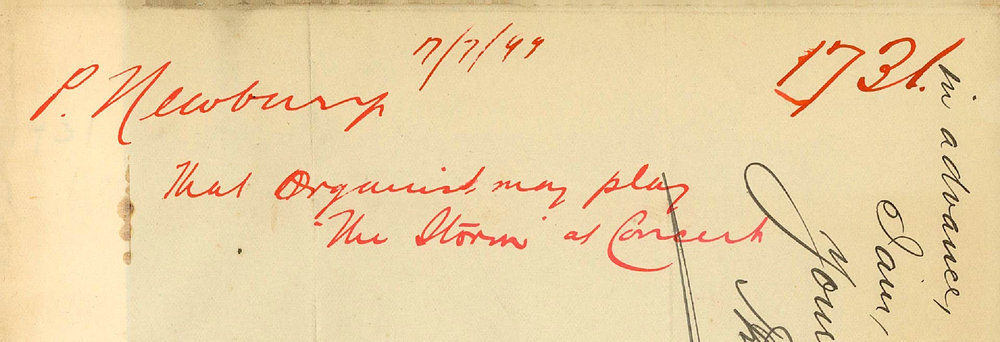 7/7/99
1731.
P. Newbury
That Organist may play
"The Storm" at Concert
in advance,
I am,